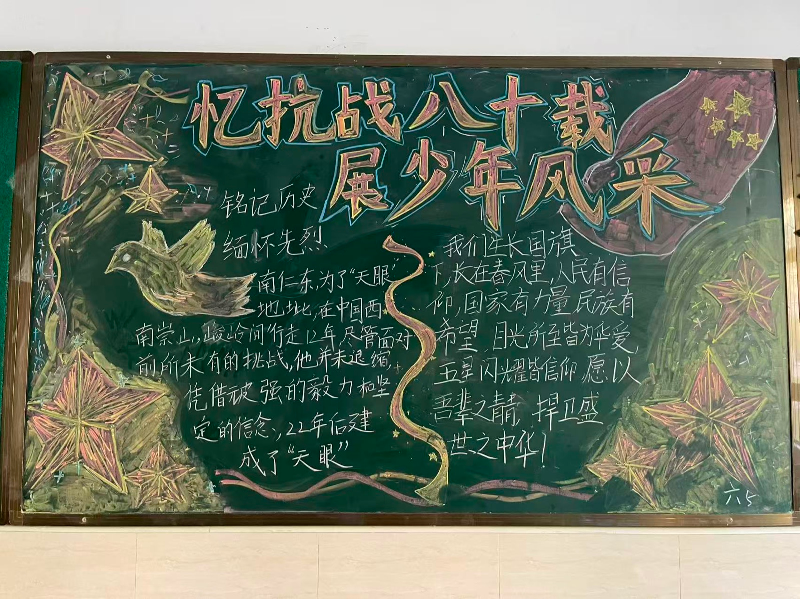 忆抗战八十载
展少年风采
铭记历史
缅怀先烈
南仁东,为了“天眼”
地址,在中国西
南崇山,峻岭间行走12年,尽管面对
前所未有的挑战,他并未退缩,
凭借顽强的毅力和坚
定的信念,22年后建
成了“天眼”
我们生长国旗
下,长在春风里,人民有信
仰,国家有力量,民族有
希望,目光所至皆为华夏,
五星闪耀皆信仰,愿以
吾辈之青,捍卫盛
世之中华!
六5